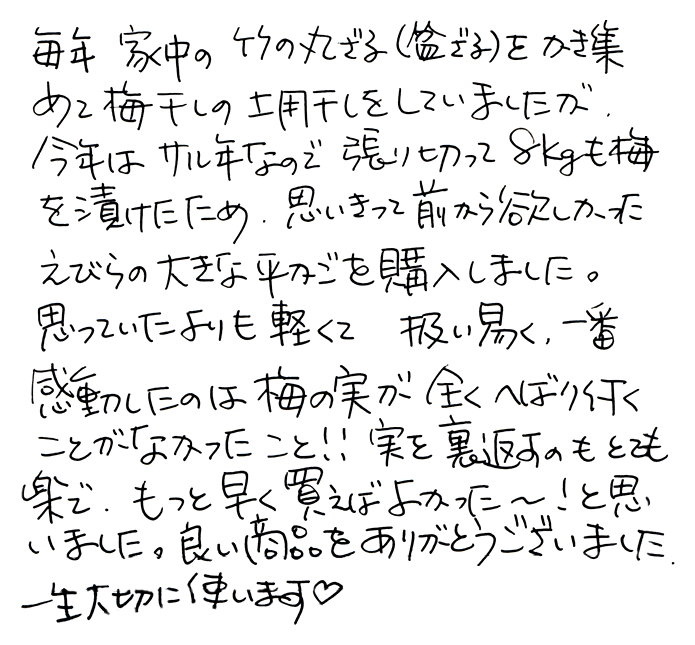 毎年 家中の 竹の丸ざる(盆ざる)を かき集
めて梅干しの 土用干しをしていましたが、
今年は サル年なので 張り切って 8kgも梅
を漬けたため、思いきって前から欲しかった
えびらの大きな平かごを購入しました。
思っていたよりも軽くて 扱い易く、一番
感動したのは梅の実が 全くへばり付く
ことがなかったこと!! 実を裏返すのもとても
楽で、もっと早く買えばよかった〜!と思
いました。良い商品をありがとうございました。
一生大切に使います♡